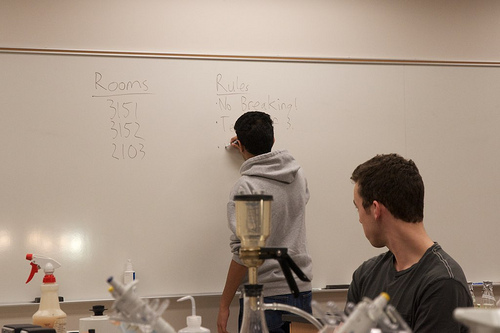 Rooms
3151
3152
2103
Rules
·No Breaking!